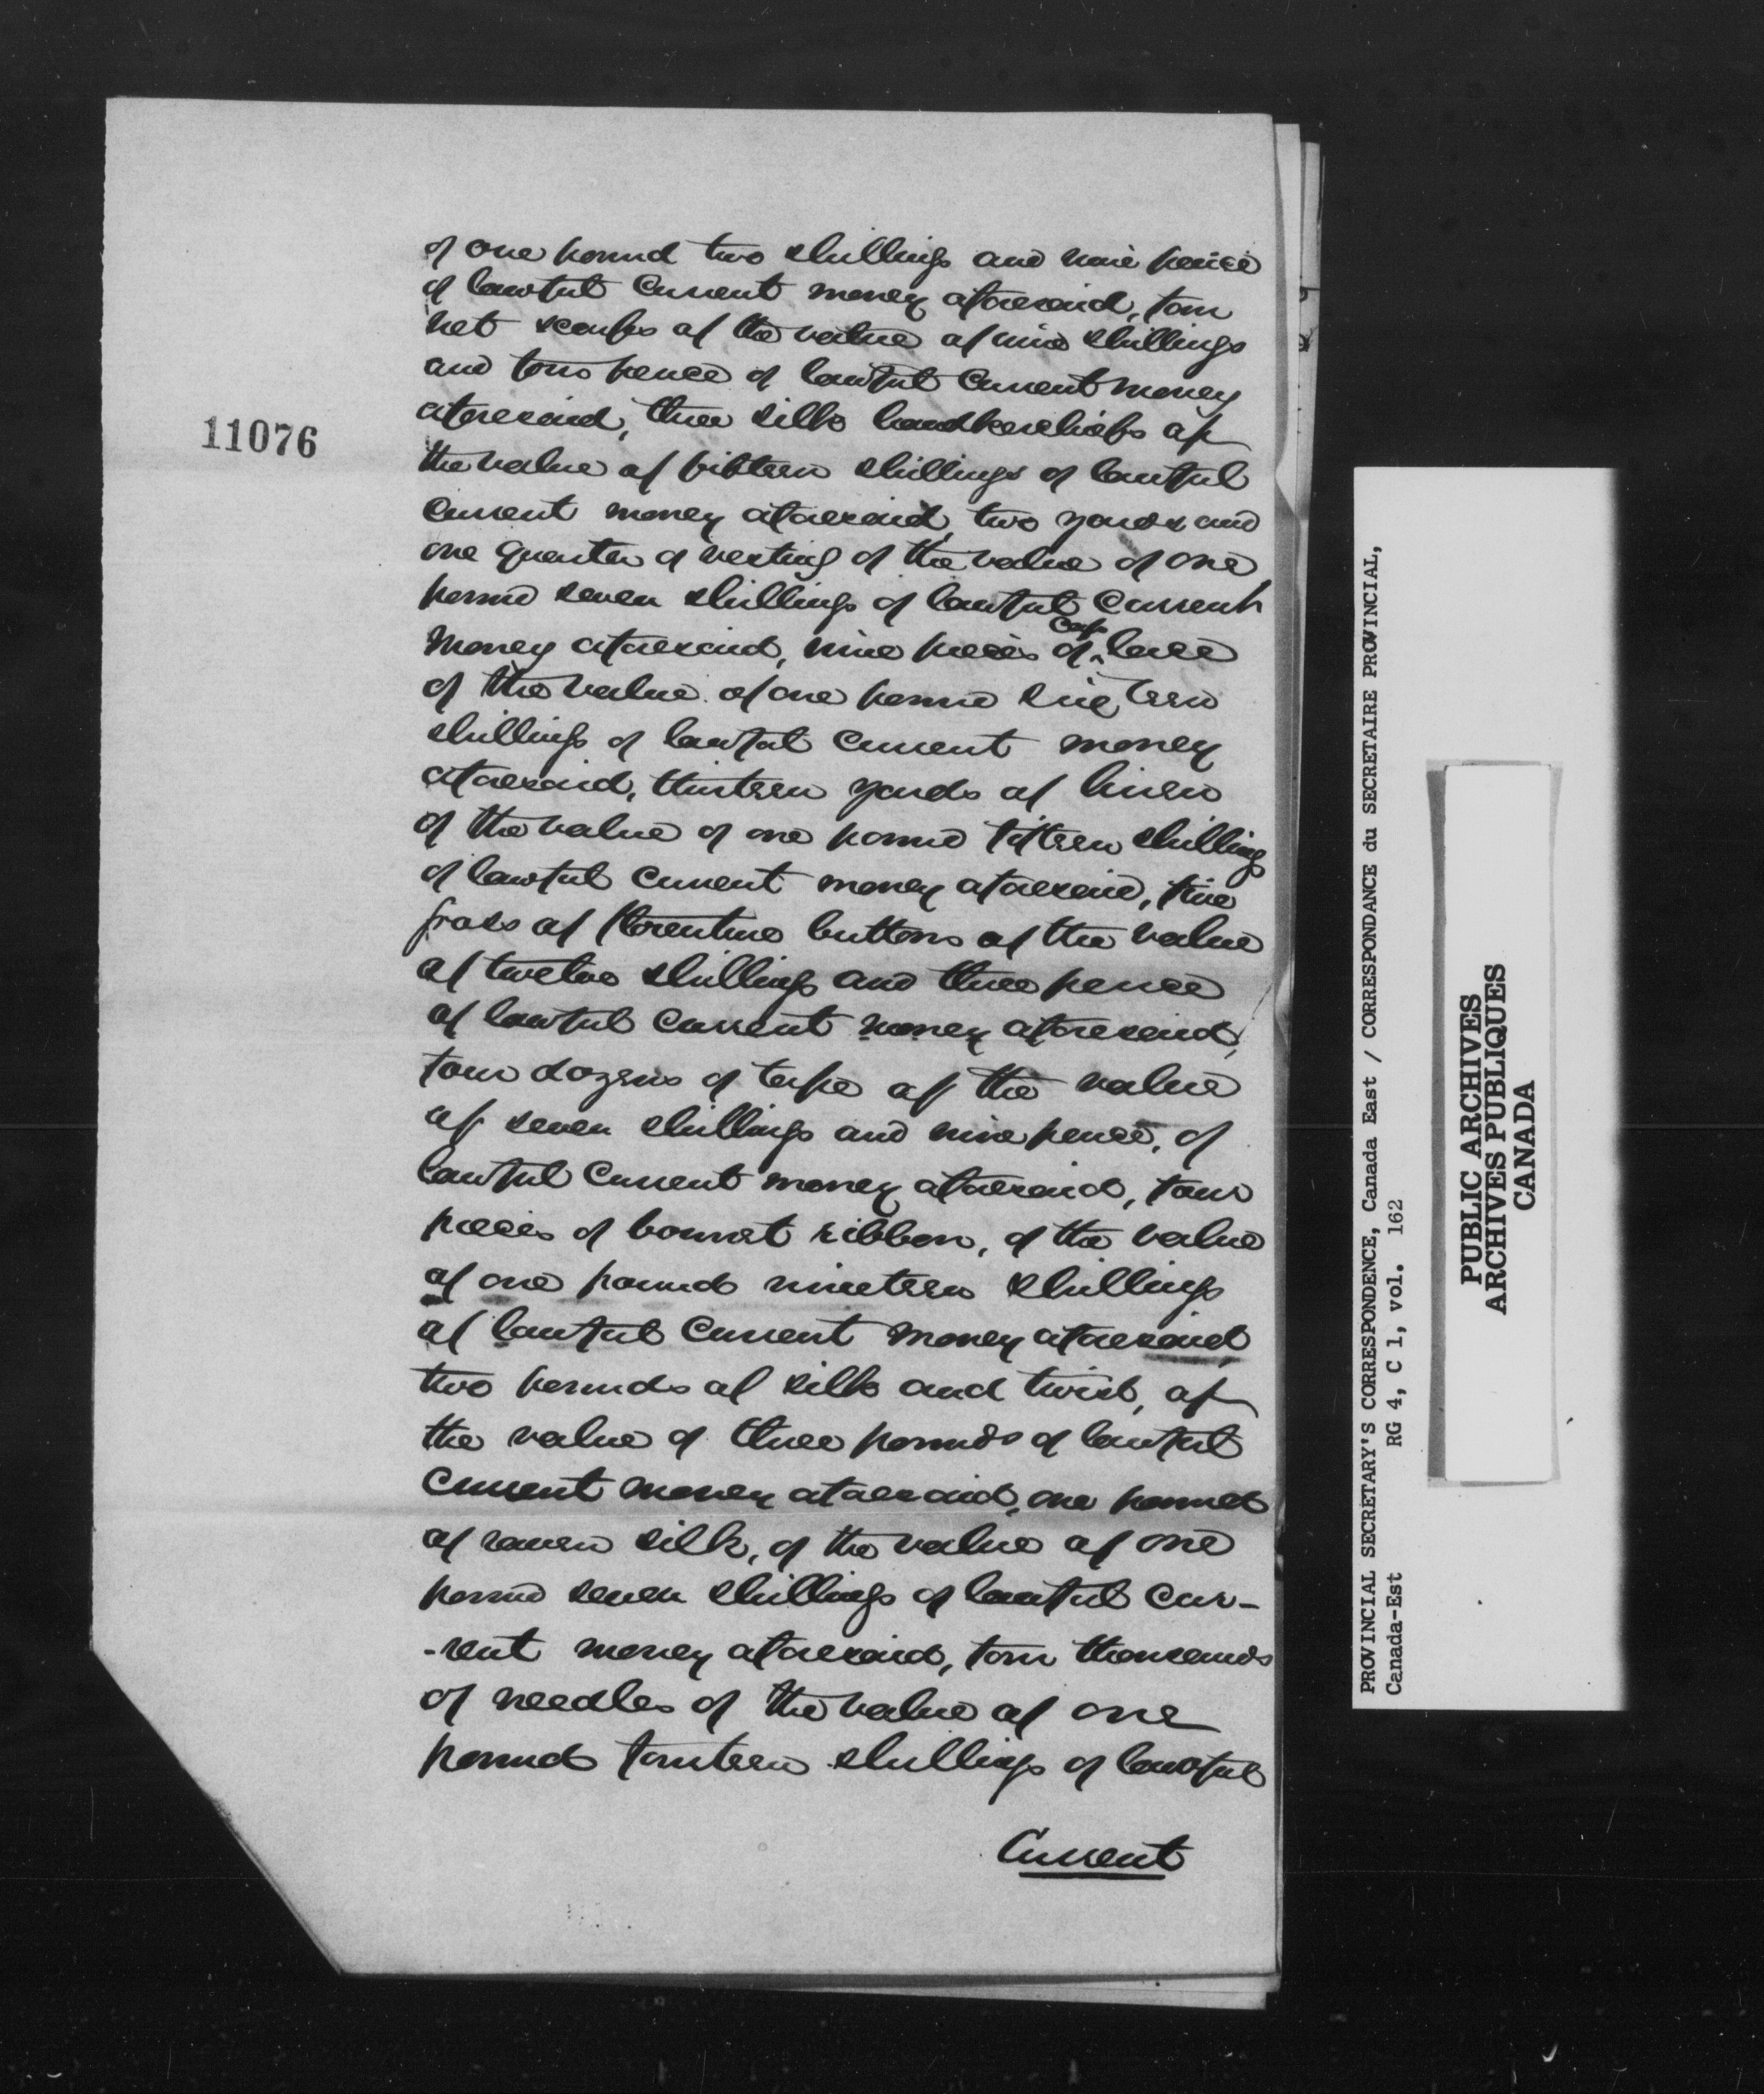 11076
of one pound two shillings and nine pence
of lawful current money aforesaid, four
net scarfs of the value of nine shillings
and four pence of lawful current money
aforesaid, three silk handkerchiefs of
the value of fifteen shillings of lawful
current money aforesaid, two yards and
one quarter of vesting of the value of one
pound seven shillings of lawful current
money aforesaid, nine pieces of cap lace
of the value of one pound sixteen
shillings of lawful current money
aforesaid, thirteen yards of linen
of the value of one pound fifteen shillings
of lawful current money aforesaid, five
gross of florentine buttons of the value
of twelve shillings and three pence
of lawful current money aforesaid,
four dozens of tape of the value
of seven shillings and nine pence, of
lawful current money aforesaid, four
pieces of bonnet ribbon, of the value
of one pound nineteen shillings
of lawful current money aforesaid
two pounds of silk and twist, of
the value of three pounds of lawful
current money aforesaid, one pound
of raven silk, of the value of one
pound seven shillings of lawful cur-
-rent money aforesaid, four thousands
of needles of the value of one
pound fourteen shillings of lawful
Current
PROVINCIAL SECRETARY'S CORRESPONDENCE, Canada East / CORRESPONDANCE du SECRETAIRE PROVINCIAL,
Canada-Est RG 4, C 1, vol. 162
PUBLIC ARCHIVES
ARCHIVES PUBLIQUES
CANADA